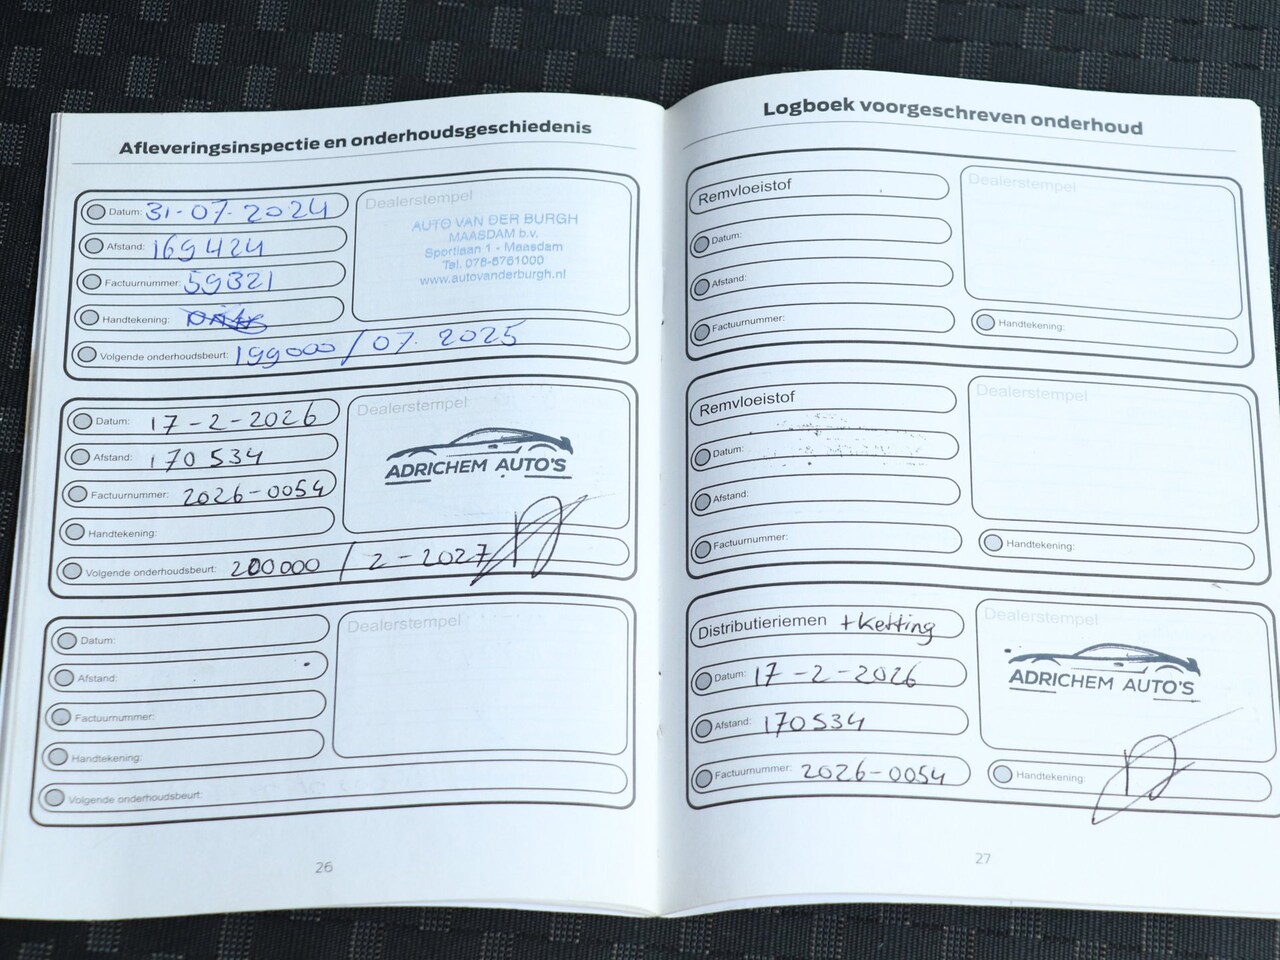 Afleveringsinspectie en onderhoudsgeschiedenis
Datum: 31-07-2024
Afstand: 169424
Factuurnummer: 59321
Handtekening:
Volgende onderhoudsbeurt: 199000 / 07. 2025
Dealerstempel
AUTO VAN DER BURGH
MAASDAM b.v.
Sportlaan 1 - Maasdam
Tel. 078-6761000
www.autovanderburgh.nl
Datum: 17-2-2026
Afstand: 170534
Factuurnummer: 2026-0054
Handtekening:
Volgende onderhoudsbeurt: 200000 / 2-2027
Dealerstempel
ADRICHEM AUTO'S
Datum:
Afstand:
Factuurnummer:
Handtekening:
Volgende onderhoudsbeurt:
Dealerstempel
26
Logboek voorgeschreven onderhoud
Remvloeistof
Datum:
Afstand:
Factuurnummer:
Dealerstempel
Handtekening:
Remvloeistof
Datum:
Afstand:
Factuurnummer:
Dealerstempel
Handtekening:
Distributieriemen + Ketting
Datum: 17-2-2026
Afstand: 170534
Factuurnummer: 2026-0054
Dealerstempel
ADRICHEM AUTO'S
Handtekening:
27